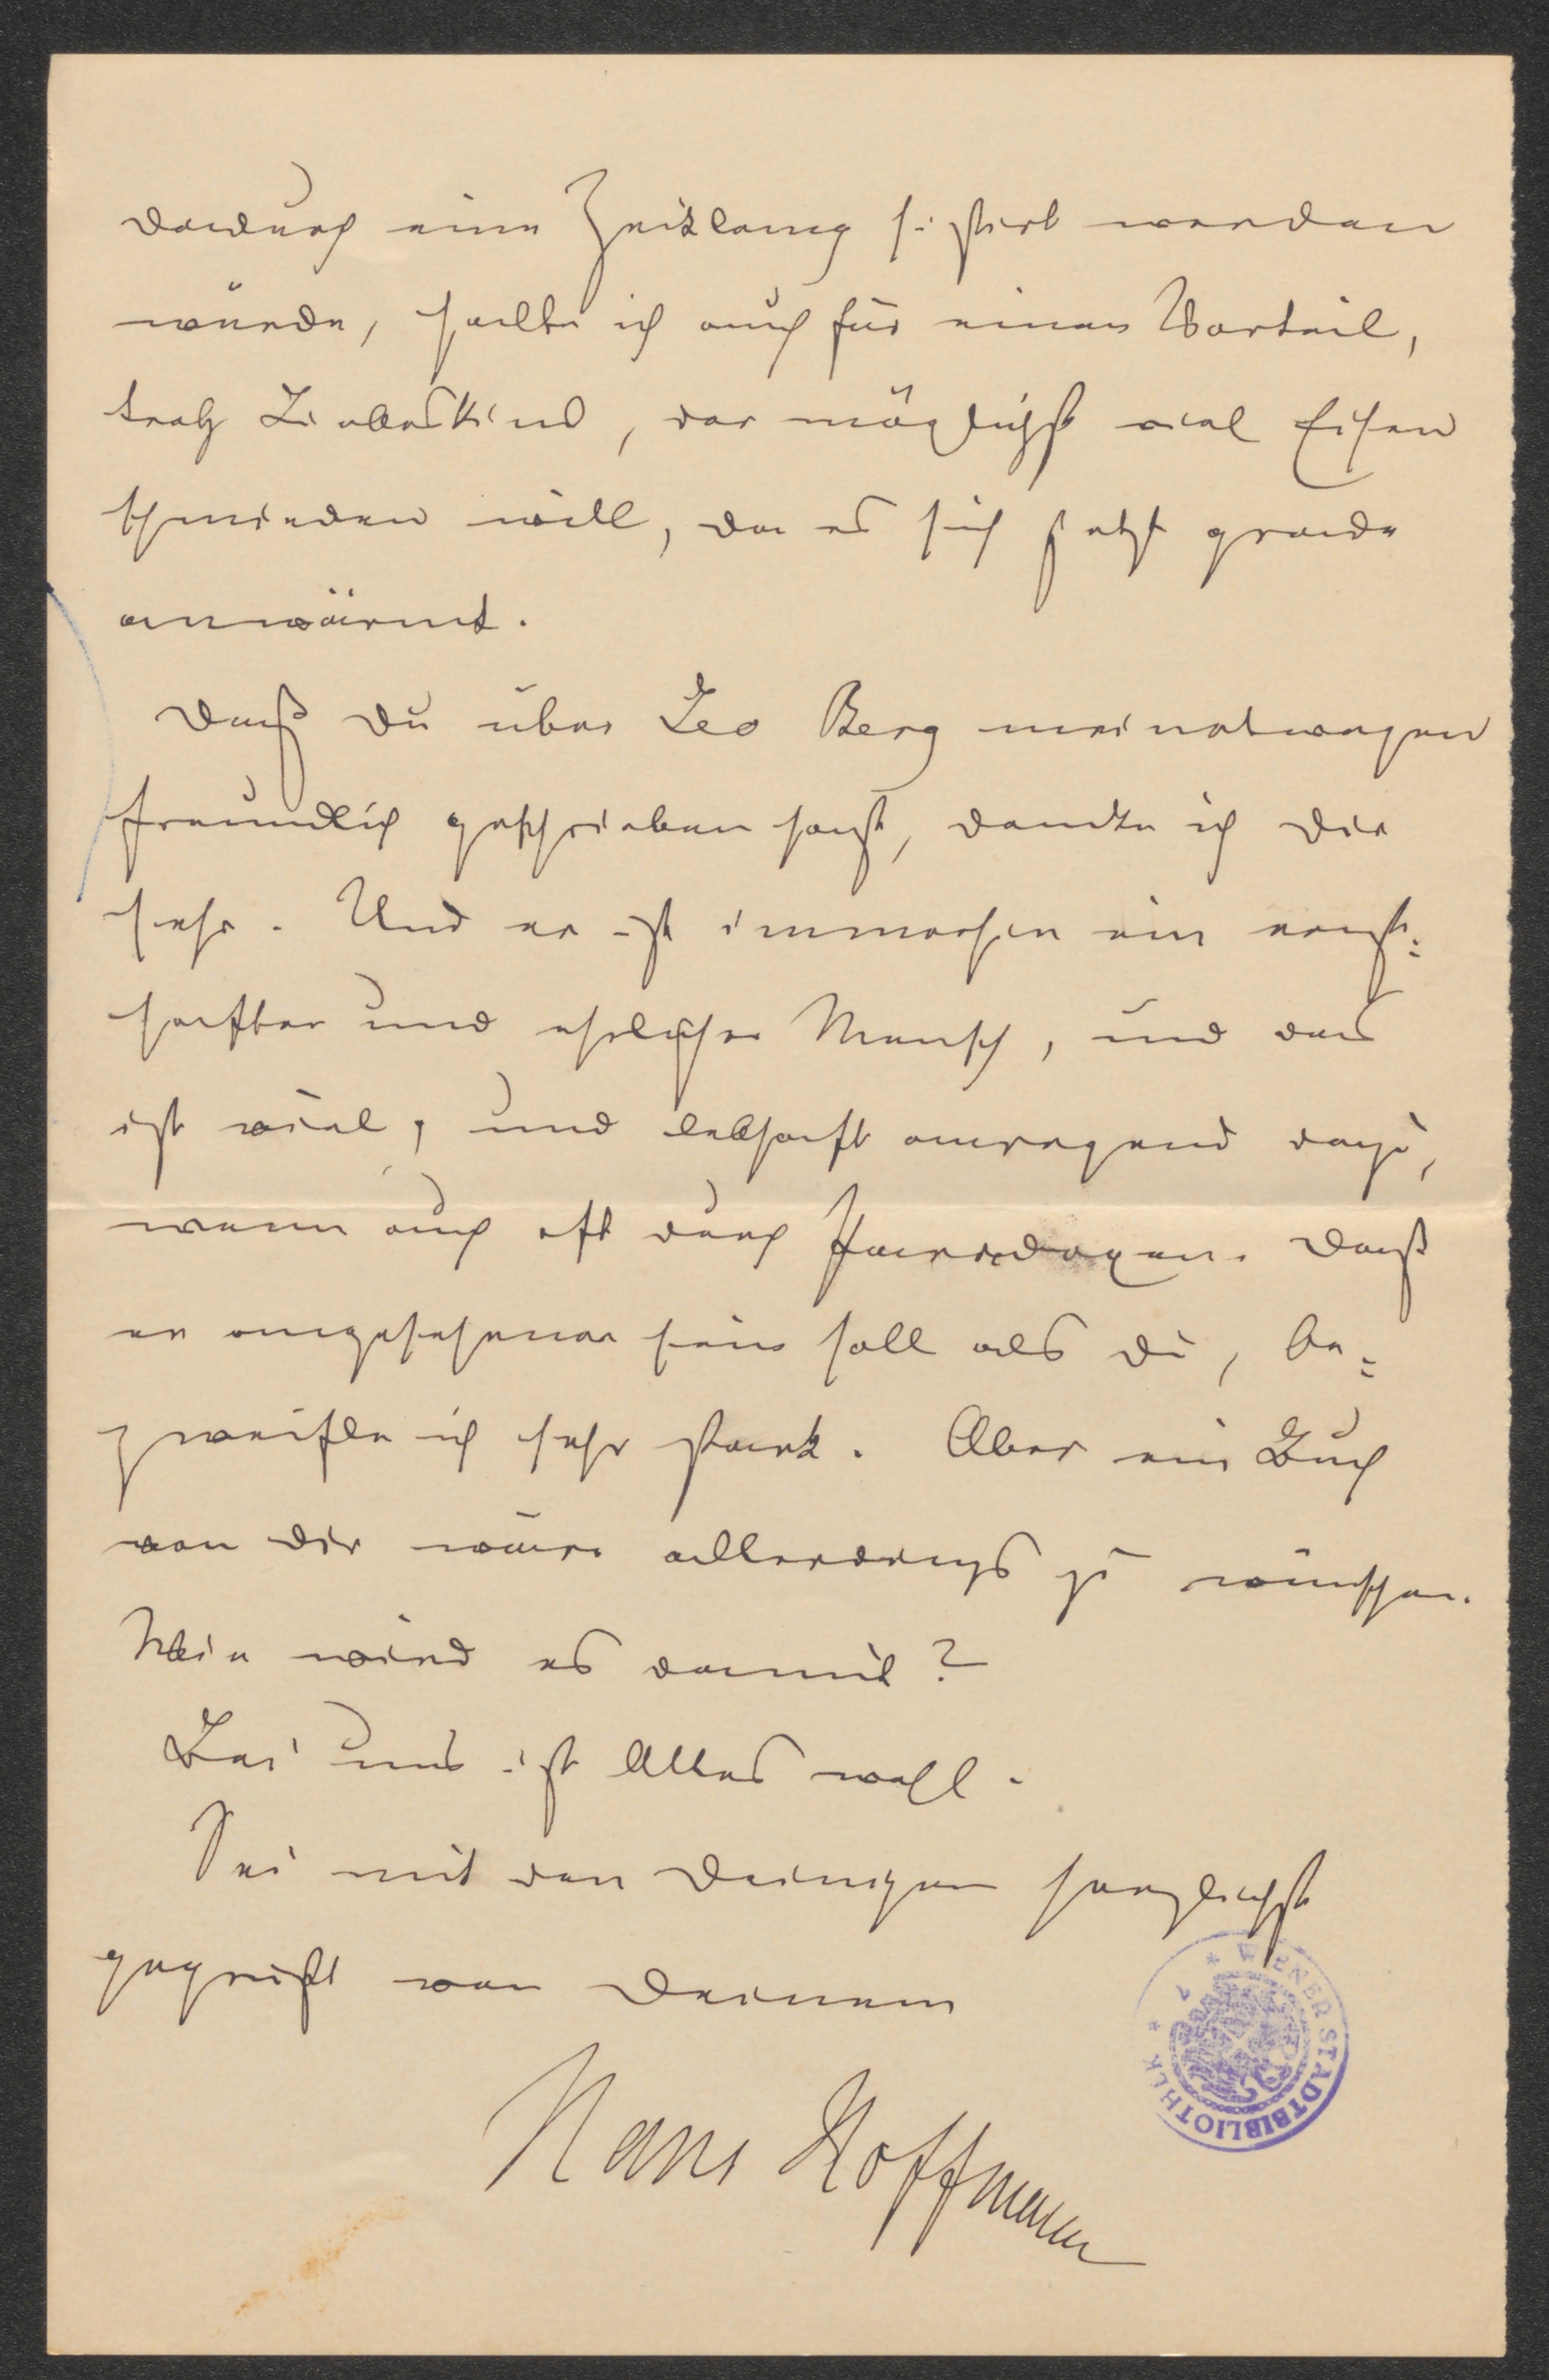 dadurch eine Zeitlang sistirt werden
würde, hielte ich auch für einen Vorteil,
trotz Liebeskind, der möglichst viel Eisen
schmieden will, da es sich jetzt grade
anwärmt.
Daß Du über Leo Berg meinetwegen
freundlich geschrieben hast, danke ich Dir
sehr. Und er ist immerhin ein ernst-
hafter und ehrlicher Mensch, und das
ist viel, und lebhaft anregend dazu,
wenn auch oft durch Paradoxen. Daß
er angesehener sein soll als Du, be-
zweifle ich sehr stark. Aber ein Buch
von Dir wäre allerdings zu wünschen.
Wie wird es damit?
Bei uns ist Alles wohl.
Sei mit den Deinigen herzlichst
gegrüßt von Deinem
Hans Hoffmann
* WIENER STADTBIBLIOTHEK *